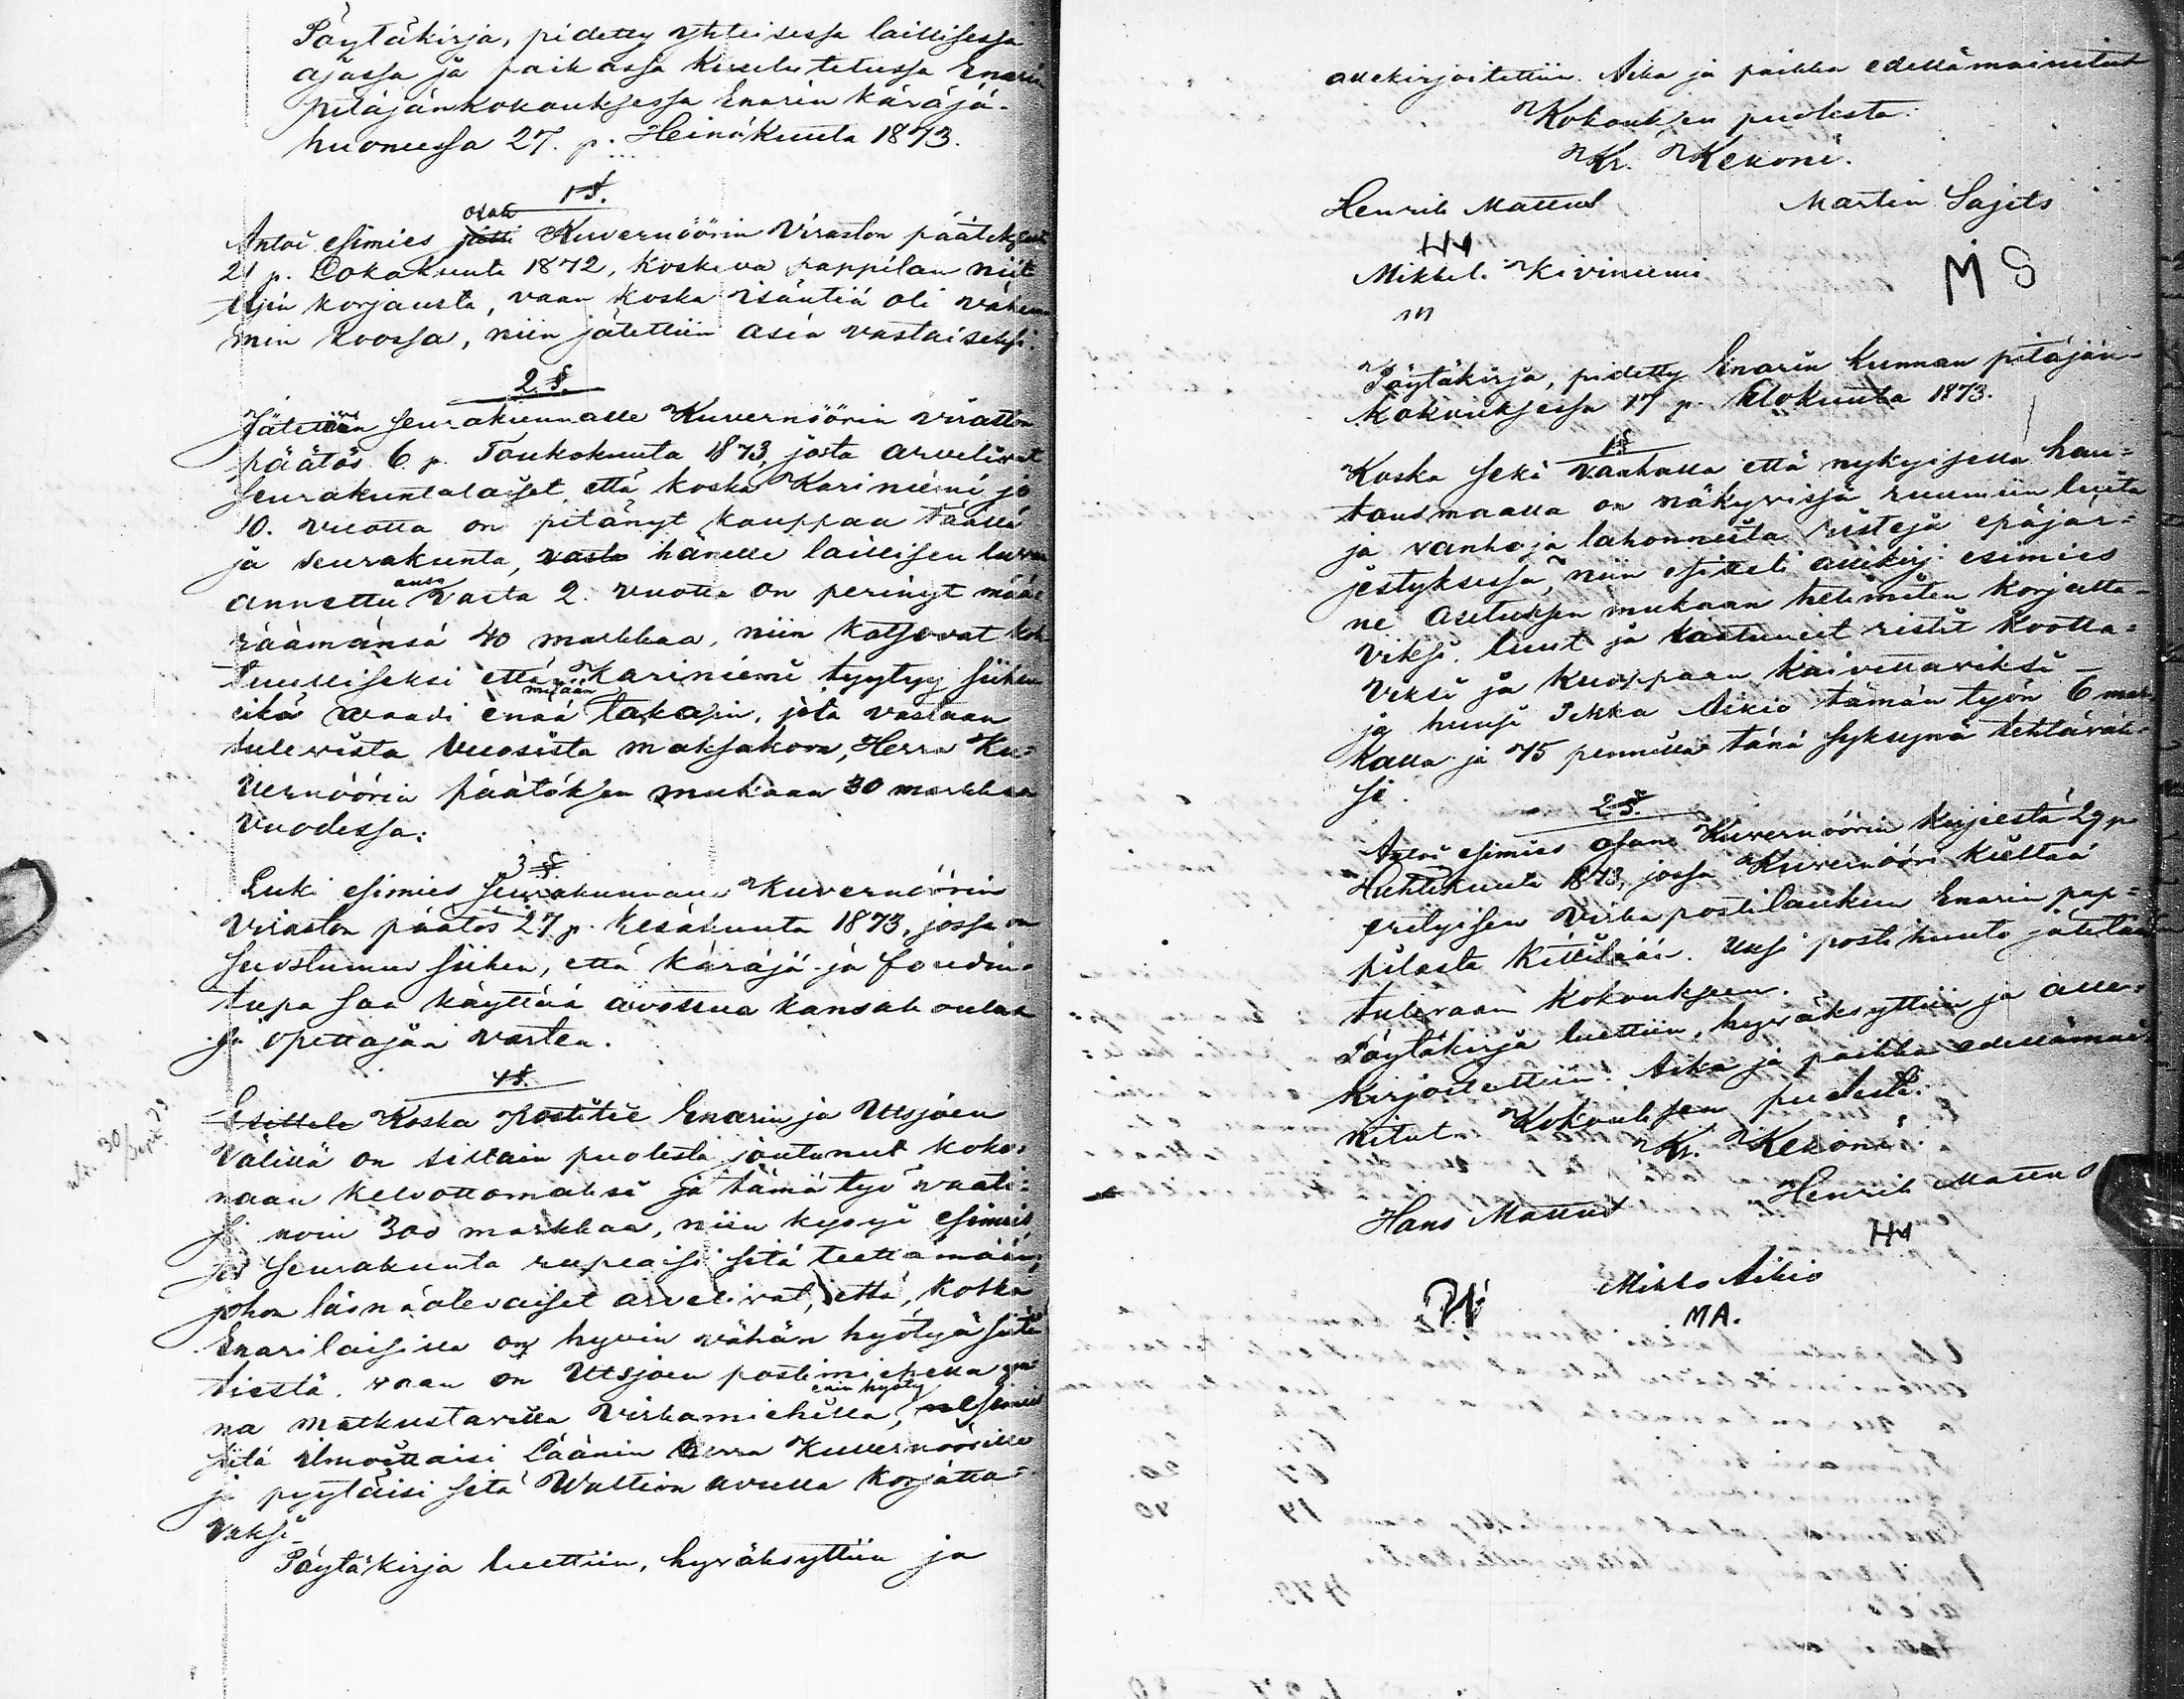 Pöytäkirja, pidetty yhteisessa laillisessa
ajassa ja paikassa kuulutetussa Enarin
pitäjänkokouksessa Enarin käräjä-
huoneessa 27. p. Heinäkuuta 1873.
1 §.
Antoi esimies otab Kuvernöörin Viraston
21 p. Lokakuuta 1872, koskeva pappilan niit
korjausta, vaan koska isäntiä oli vähem
min koossa, niin jätettiin asia vastaiseksi.
2 §.
Jätettiin seurakunnalle Kuvernöörin viraston
päätös 6 p. Toukokuuta 1873, josta arvelivat
seurakuntalaiset että koska Kariniemi jo
10. vuotta on pitänyt kauppaa täällä
ja seurakunta, vasta hänelle laillisen luvan
annettu vasta 2. vuotta on perinyt mää
räämänsä 40 markkaa, niin katsovat koh
tuulliseksi että Kariniemi tyytyy siihen
eikä mitään waadi enää takasin, jota vastaan
tulevista vuosista maksakoon, Herra Ku-
vernöörin päätöksen mukaan 30 markkaa
vuodessa.
3 §
Luki esimies seurakunnan Kuvernöörin
Viraston päätös 27 p. Kesäkuuta 1873, jossa on
suostumus siihen, että käräjä- ja
tupa saa käyttää avossua kansakoulua
ja opettajan varten.
4 §.
Esittele Koska Postitie Enarin ja Utsjoen
Välillä on siltain puolesta joutunut koko-
naan kelvottomaksi ja tämä työ vaati-
si noin 300 markkaa, niin kysyi esimies
jos seurakunta rupeaisi sitä teettämään,
johon läsnäolevaiset arvelivat, että, koska
Enarilaisilla on hyvin vähän hyötyä siitä
tiestä, vaan on Utsjoen postimiehella
na matkustavilla Virkamiehillä, enin hyöty esimies
sitä ilmoittaisi Läänin Herra Kuvernöörille
ja pyytäisi sitä Waltion avulla korjatta-
vaksi.
Pöytäkirja luettiin, hyväksyttiin ja
allekirjoitettiin. Aika ja paikka edellämainitut
Kokouksen puolesta.
Kr. Kekoni.
Henrik Mattus Martin Sajets
HM
Mikkel Kiviniemi M S
m
Pöytäkirja, pidetty Enarin kunnan pitäjän-
kokouksessa 17 p. Elokuuta 1873.
1 §
Koska sekä vanhalla että nykyisellä hau-
tausmaalla on näkyvissä ruumiin luita
ja vanhoja lahonneita ristejä epäjär-
jestyksessä, niin esitteli allekirj. esimies
ne asetuksen mukaan korjatta-
viksi. luut ja kaatuneet ristit kootta-
veksi ja kuoppaan kaivettaviksi -
ja huusi Pekka Aikio tämän työn 6 mar
kalla ja 75 pennillä tänä syksynä tehtäväk-
si.
2 §.
Antoi esimies osan Kuvernöörin kirjeestä 29 p
Huhtikuuta 1873, jossa Kuvernööri kieltää
erityisen virka postilaukun Enarin pap-
pilasta Kittilään. Uusi postihuuto jätetään
tulevaan kokoukseen.
Pöytäkirja luettiin, hyväksyttiin ja alle-
kirjoitettiin. Aika ja paikka edellämai-
nitut. Kokouksen puolesta.
Kr. Kekoni.
Hans Mattus Henrik Mattus
HM
Mikko Aikio
MA.